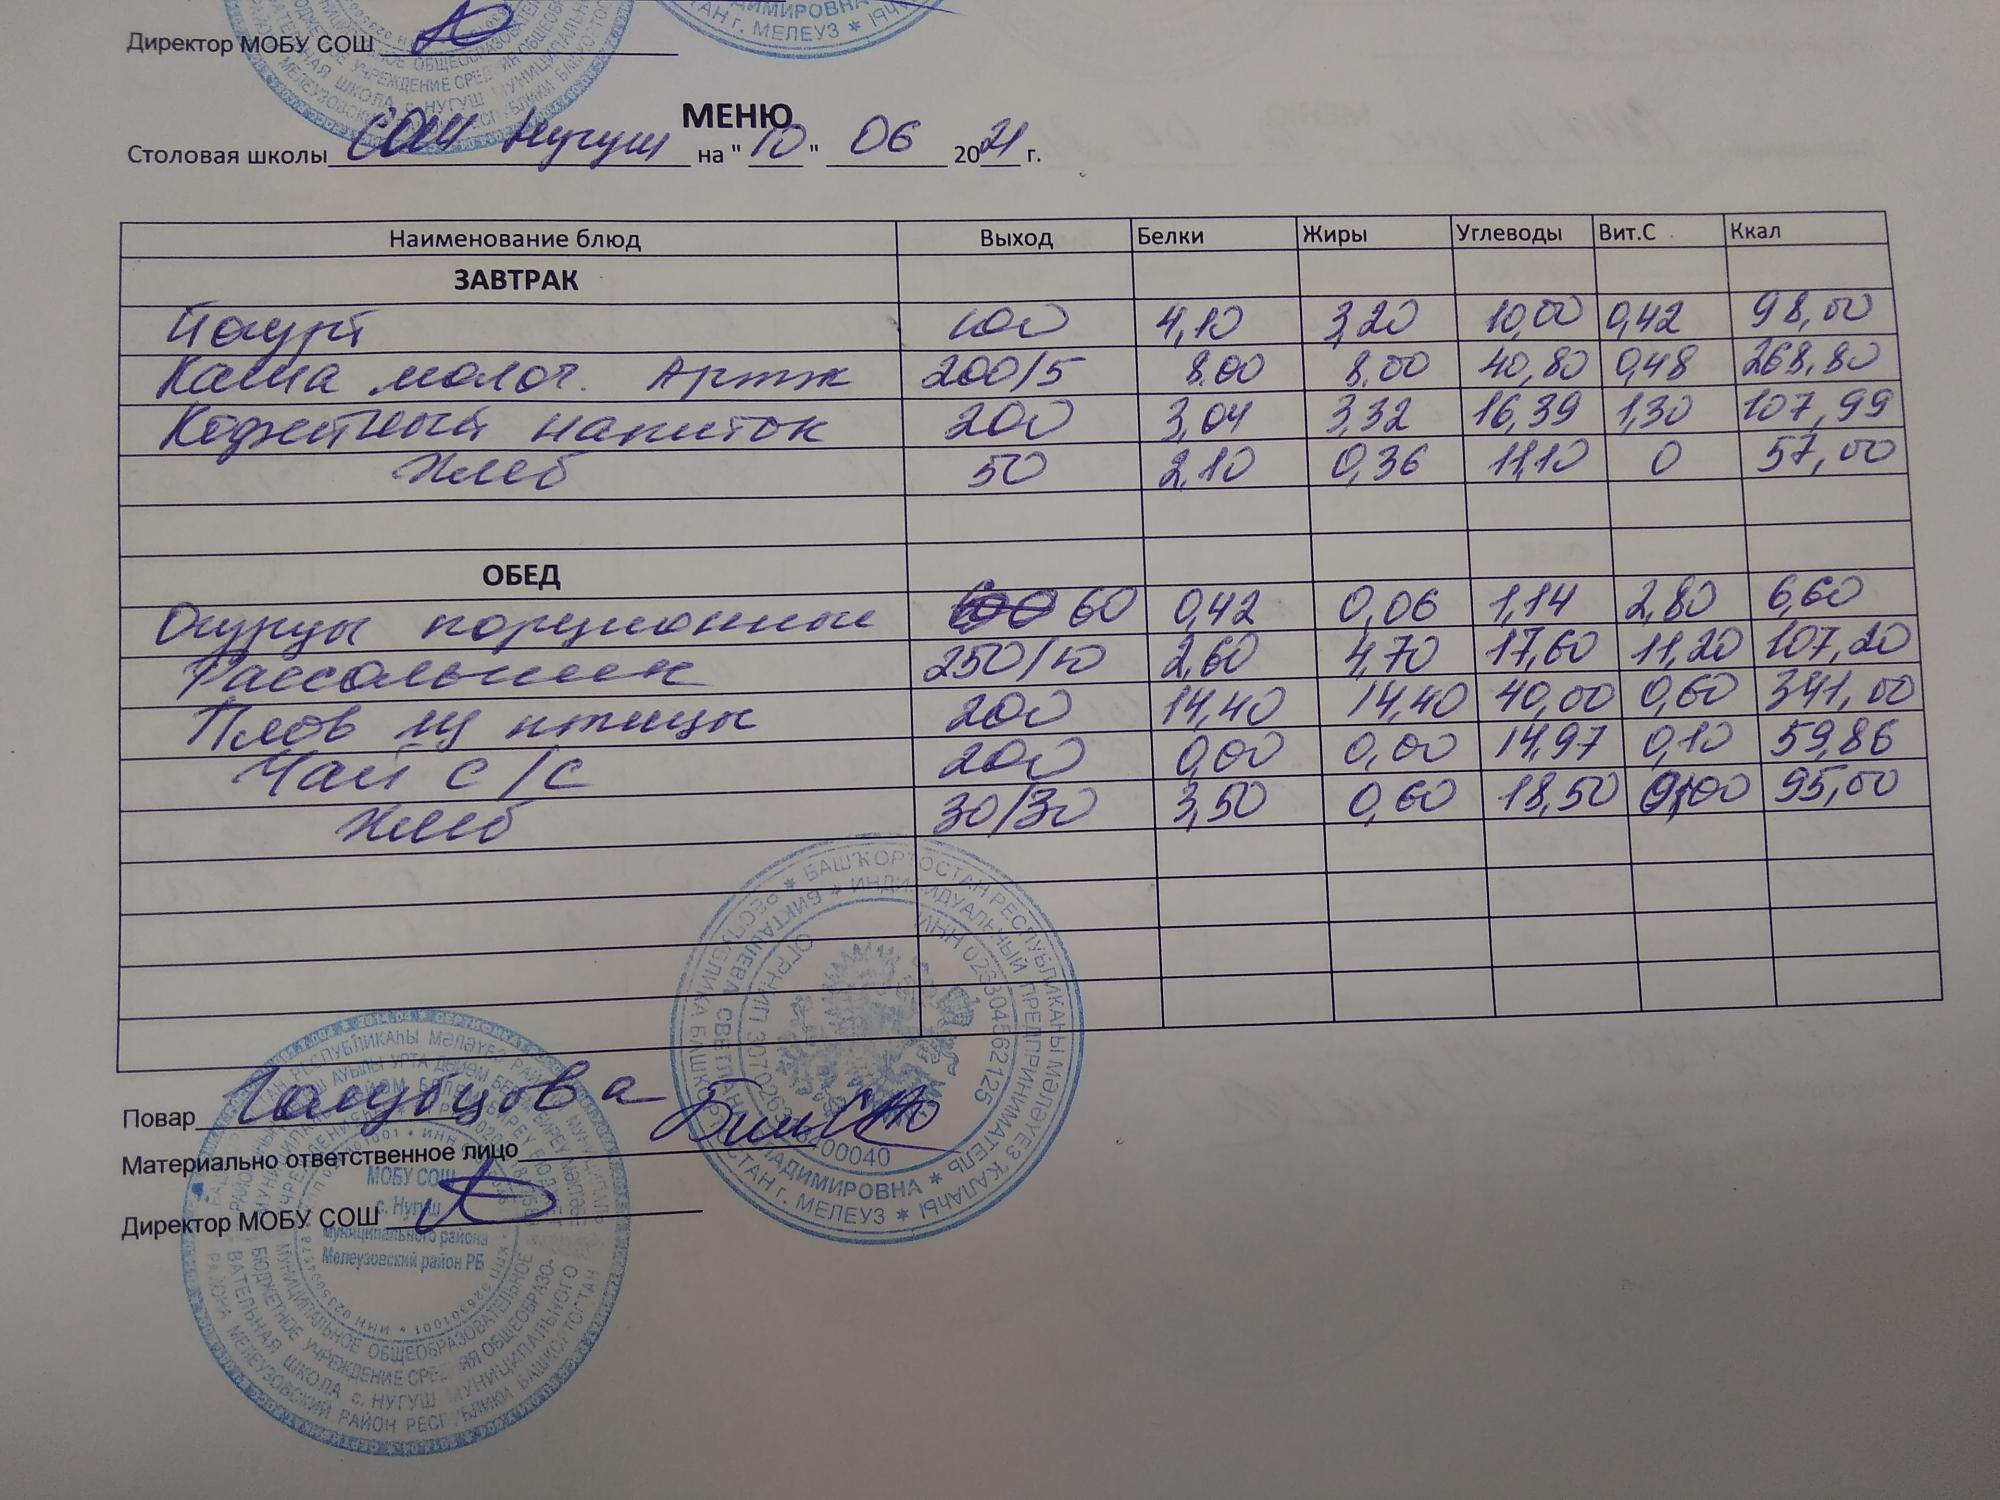 Директор МОБУ СОШ
МЕНЮ
Столовая школы СОШ Нугуш на "10" 06 2021 г.
Наименование блюд Выход Белки Жиры Углеводы Вит.С Ккал
ЗАВТРАК
Йогурт 100 4,10 3,20 10,00 0,42 98,00
Каша молоч. Артек 200/5 8.00 8,00 40,80 0,48 268,80
Кофейный напиток 200 3,04 3,32 16,39 1,30 107,99
Хлеб 50 2,10 0,36 11,10 0 57,00
ОБЕД
Огурцы порционные 60 0,42 0,06 1,14 2,80 6,60
Рассольник 250/10 2,60 4,70 17,60 11,20 107,20
Плов из птицы 200 14,40 14,40 40,00 0,60 341,00
Чай с/с 200 0,00 0,00 14,97 0,10 59,86
Хлеб 30/30 3,50 0,60 18,50 0,00 95,00
Повар Голубцова
Материально ответственное лицо
Директор МОБУ СОШ
МОБУ СОШ
с. Нугуш
муниципального района
Мелеузовский район РБ
БАШҠОРТОСТАН РЕСПУБЛИКАҺЫ МӘЛӘҮЕЗ ҠАЛАҺЫ
ИНДИВИДУАЛЬНЫЙ ПРЕДПРИНИМАТЕЛЬ
ИНН 026304562125